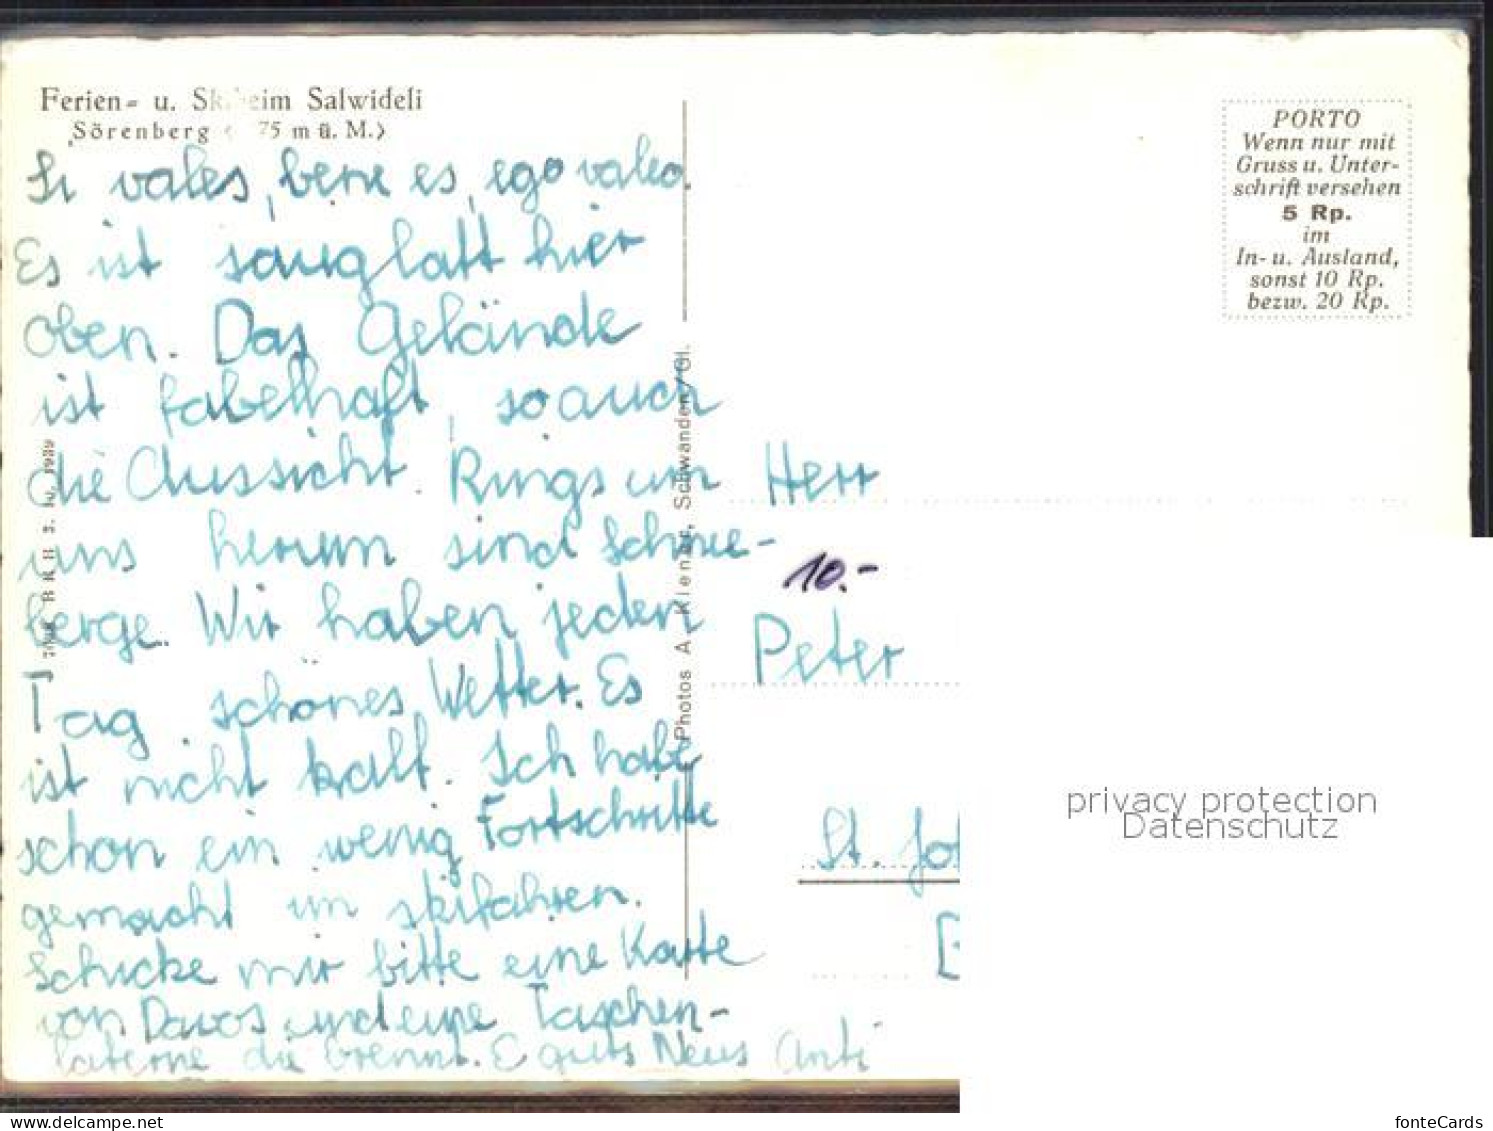 Ferien- u. Skiheim Salwideli
Sörenberg 75 m ü. M.)
Si vales, bene es, ego valeo.
Es ist sauglatt hier
oben. Das Gelände
ist fabelhaft, so auch
die Aussicht. Rings um
uns herum sind Schnee-
berge. Wir haben jeden
Tag schönes Wetter. Es
ist nicht kalt. Ich habe
schon ein wenig Fortschritte
gemacht im skifahren.
Schicke mir bitte eine Karte
von Davos und eine Taschen-
laterne die brennt. E guets Neus Anti
Photos A. Kienzi, Schwanden/Gl.
PORTO
Wenn nur mit
Gruss u. Unter-
schrift versehen
5 Rp.
im
In- u. Ausland,
sonst 10 Rp.
bezw. 20 Rp.
Herr
10.-
Peter
St. Joh
privacy protection
Datenschutz
www.delcampe.net
fonteCards